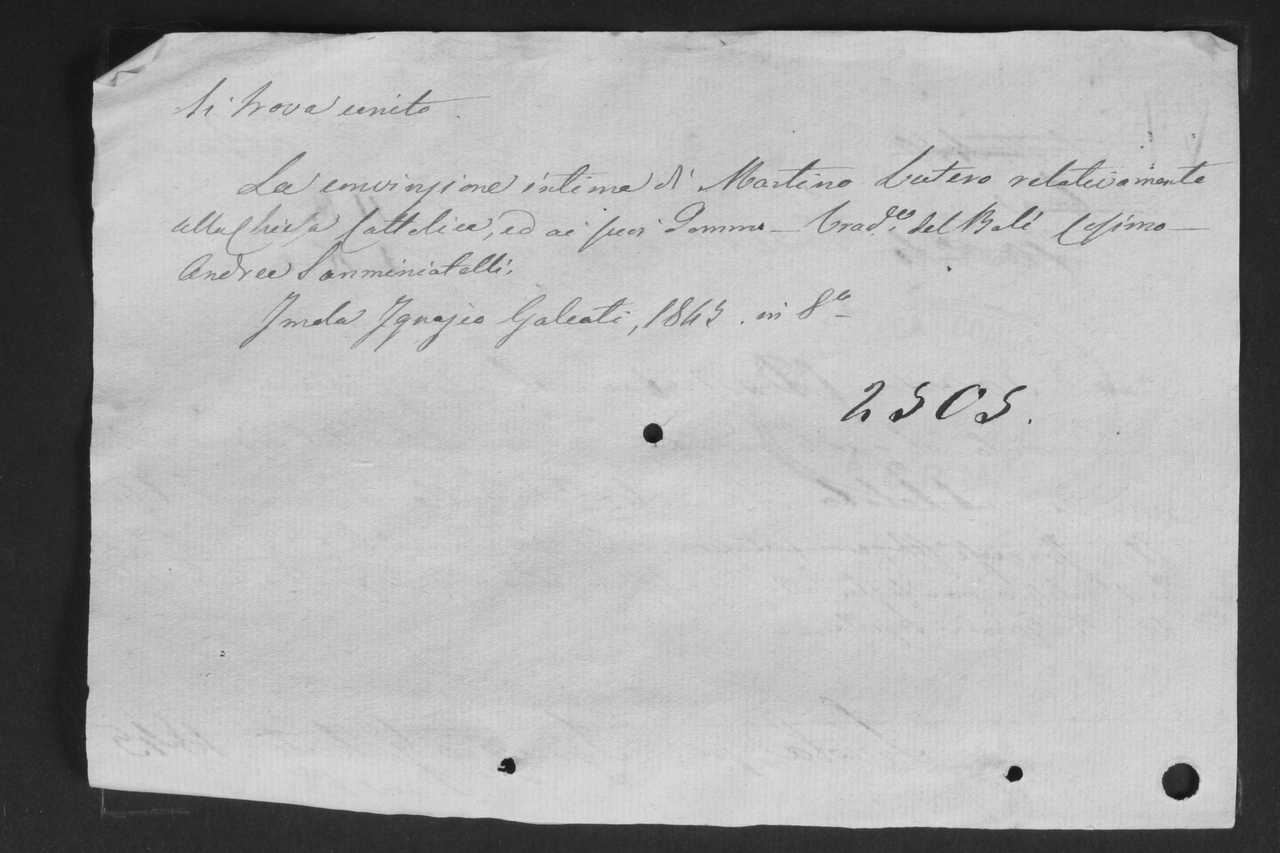 Si trova unito.
La convinzione intima di Martino Lutero relativamente
alla Chiesa Cattolica, ed ai suoi Dommi - Trad.e del Balì Cosimo
Andrea Sanminiatelli.
Imola Ignazio Galeati, 1845. in 8.o
2505.